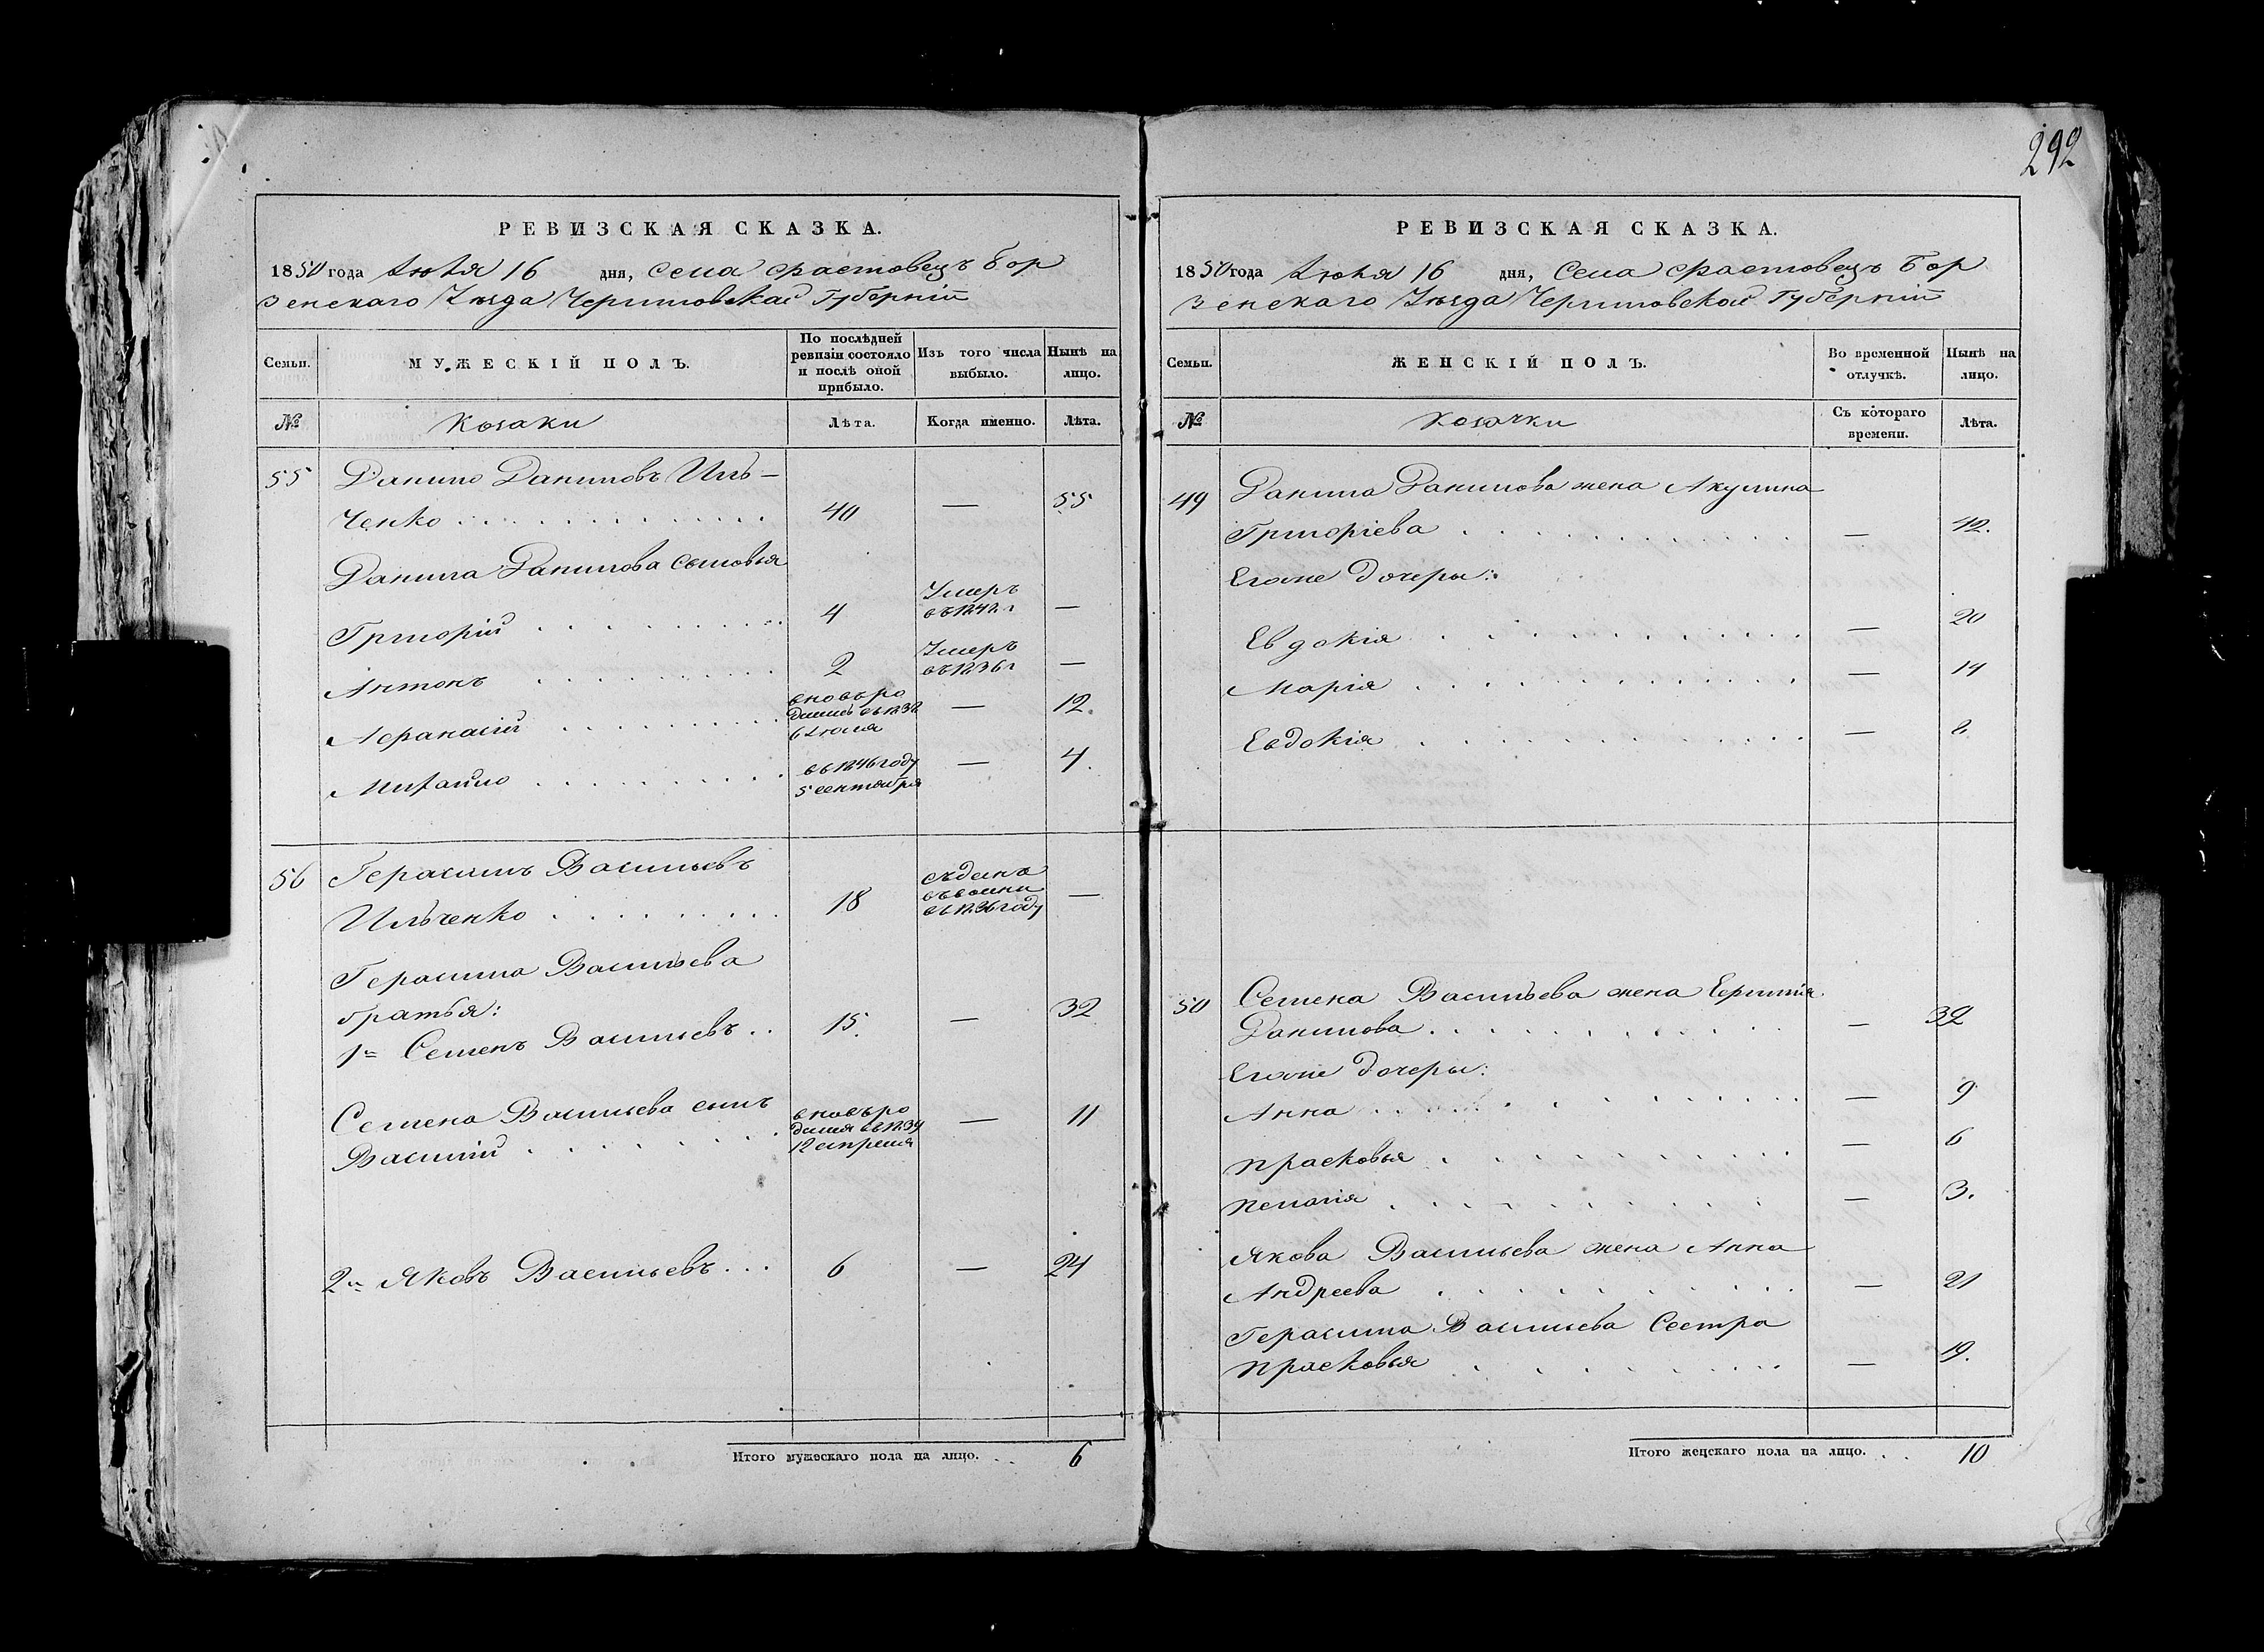 292
РЕВИЗСКАЯ СКАЗКА.
1850 года Июня 16 дня, села Фастовецъ Бор
зенскаго Уѣзда Черниговской Губерніи
Семьи.
МУЖЕСКІЙ ПОЛЪ.
По послѣдней ревизіи состояло и послѣ оной прибыло.
Изъ того числа выбыло.
Нынѣ на лицо.
№
Козаки
Лѣта.
Когда именно.
Лѣта.
55 Данило Даниловъ Иль-
ченко . . . 40 — 55
Данила Данилова сыновья
Григорій . . . 4 Умеръ въ 1842 г —
Антонъ . . . 2 Умеръ въ 1836 г —
Афанасій . . . вновь ро дился въ 1838 6 Июля — 12.
Михайло . . . въ 1846 году 5 сентября — 4.
56 Герасимъ Васильевъ
Ильченко . . . 18 въ 1836 году —
Герасима Васильева
братья:
1й Семенъ Васильевъ . . 15. — 32
Семена Васильева сынъ
Василій . . . вновь ро дился въ 1839 12 апреля — 11
2й Яковъ Васильевъ . . . 6 — 24
Итого мужескаго пола на лицо. . . 6
РЕВИЗСКАЯ СКАЗКА.
1850 года Июня 16 дня, Села Фастовецъ Бор
зенскаго Уѣзда Черниговской Губерніи
Семьи.
ЖЕНСКІЙ ПОЛЪ.
Во временной отлучкѣ.
Нынѣ на лицо.
№
Козачки
Съ котораго времени.
Лѣта.
49 Данила Данилова жена Акулина
Григоріева . . . — 42.
Егоже дочеры:
Евдокія . . . — 20
Марія . . . — 14
Евдокія . . . — 8
50 Семена Васильева жена Ефимія
Данилова . . . — 32
Егоже дочеры:
Анна . . . — 9
Прасковья . . . — 6
Пелагія . . . — 3.
Якова Васильева жена Анна
Андреева . . . — 21
Герасима Васильева Сестра
Прасковья . . . — 19.
Итого женскаго пола на лицо. . . 10